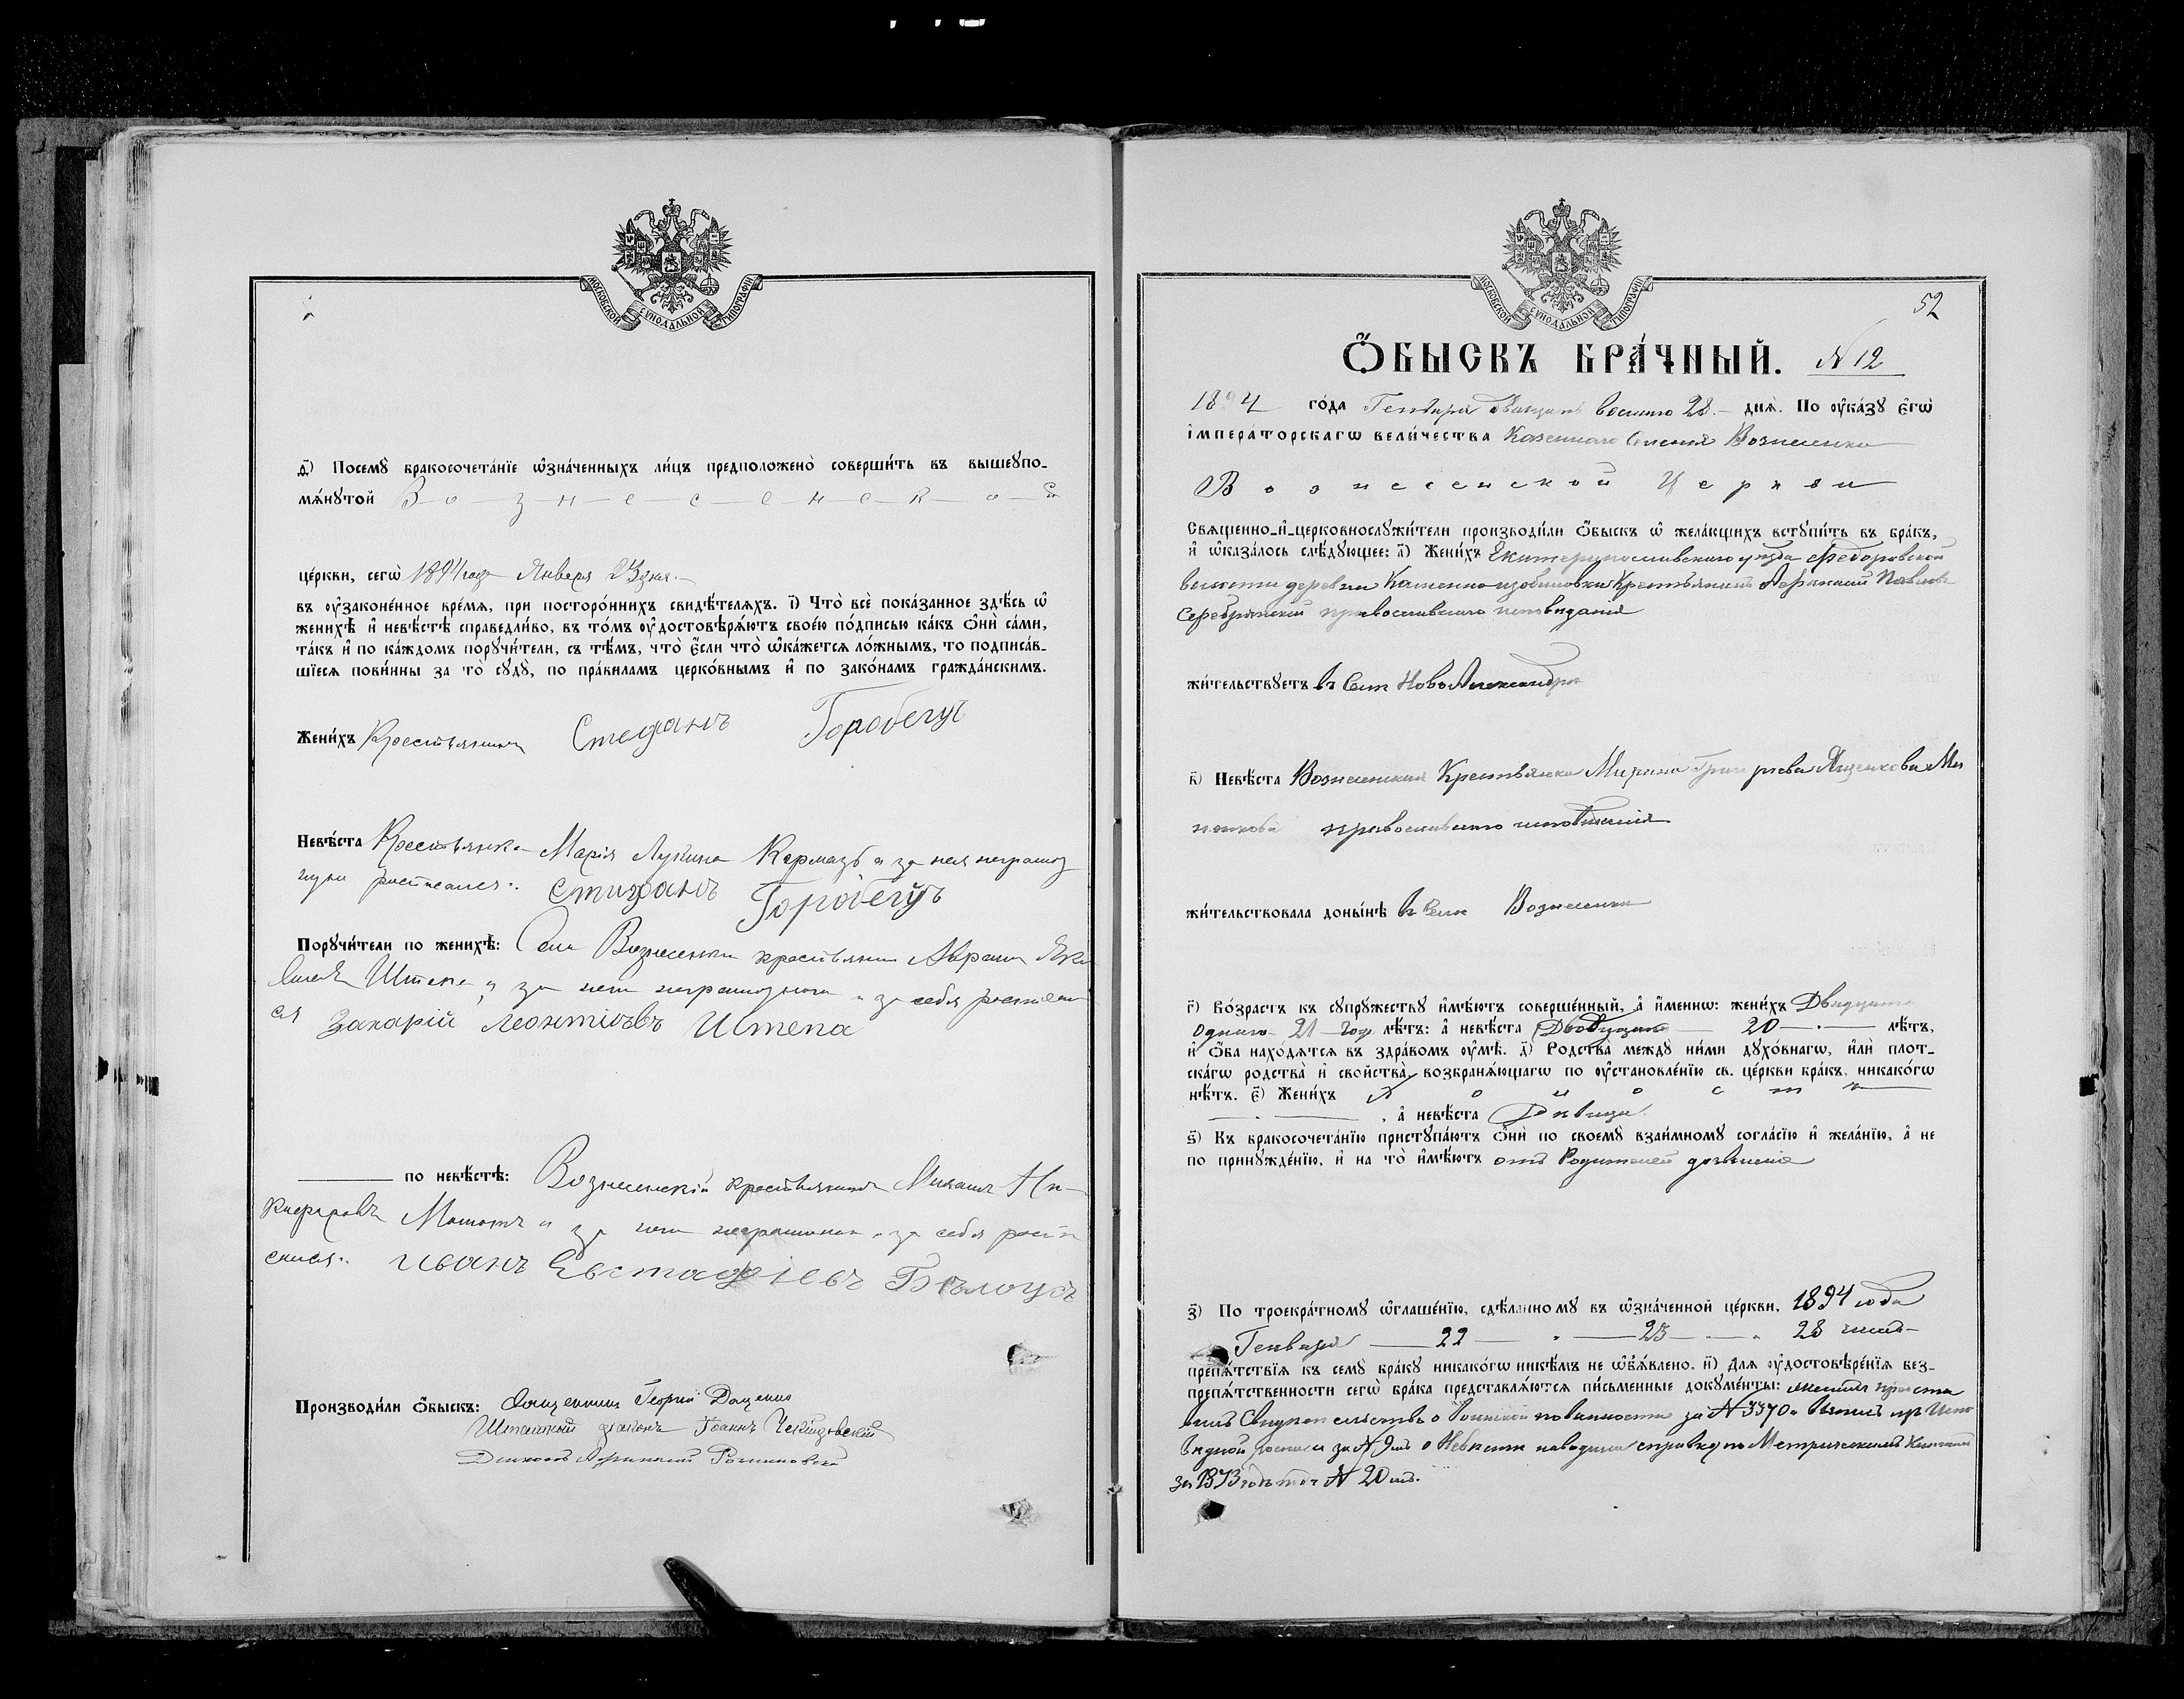 МОСКОВСКОЙ СѴНОДАЛЬНОЙ ТИПОГРАФІИ
д҃) Посемꙋ̀ бракосочета́нїе ѡ҆зна́ченныхъ ли́цъ предположено̀ соверши́ть въ вышеꙋпо-
мѧ́нꙋтой В-о-з-н-е-с-е-н-с-к-о-й
це́ркви, сегѡ̀ 1894 года Января 23 дня.-
въ ᲂу҆зако́ненное вре́мѧ, при посторо́ннихъ свидѣ́телѧхъ. і҃) Что̀ всѐ пока́занное здѣ́сь ѡ҆
женихѣ̀ и҆ невѣ́стѣ справедли́во, въ то́мъ ᲂу҆достовѣрѧ́ютъ свое́ю по́дписью ка́къ ѻ҆нѝ са́ми,
та́къ и҆ по ка́ждомъ порꙋчи́тели, съ тѣ́мъ, что̀ є҆́сли что̀ ѡ҆ка́жетсѧ ло́жнымъ, то подписа́в-
шїесѧ пови́нны за то̀ сꙋдꙋ̀, по пра́виламъ церко́внымъ и҆ по зако́намъ гражда́нскимъ.
Жени́хъ Крестьянинъ Стефанъ Горобецъ
Невѣ́ста Крестьянка Марія Лукина Кармазь а за нея неграмот
ную росписался: Стихванъ Горобецъ
Порꙋчи́тели по женихѣ̀: Села Вознесенки крестьянинъ Аврамъ
Штепа а за него неграмотнаго и за себя росписал
ся Захарій Леонтіевъ Штепа
по невѣ́стѣ: Вознесенскій крестьянинъ Михаилъ Ни-
кифоровъ а за него неграмотнаго и за себя роспи
сался: иванъ Евстафіевъ Бѣлоусъ
Производи́ли ѻ҆́быскъ: Священникъ Георгій Даценко
Штатный діаконъ Іоаннъ
МОСКОВСКОЙ СѴНОДАЛЬНОЙ ТИПОГРАФІИ
52
Ѻ҆́БЫСКЪ БРА́ЧНЫЙ. N 12
1894 го́да Генваря двадцать восьмого 28.- днѧ̀. По ᲂу҆ка́зꙋ є҆гѡ̀
і҆мпера́торскагѡ вели́чества Казеннаго Селенія Вознесенки
Вознесенской Церкви
Свѧщенно-и҆-церковнослꙋжи́тели производи́ли ѻ҆́быскъ ѡ҆ жела́ющихъ встꙋпи́ть въ бра́къ,
и҆ ѡ҆каза́лось слѣ́дꙋющее: а҃) Жени́хъ Екатеринославскаго уѣзда Федоровской
волости деревни Крестьянинъ Афанасій Павловъ
православнаго исповѣданія
жи́тельствꙋетъ въ Селѣ НовоАлександро
в҃) Невѣ́ста Вознесенская Крестьянка Марина Григорьева
православнаго исповѣданія
жи́тельствовала доны́нѣ въ Селѣ Вознесенки
г҃) Во́зрастъ къ сꙋпрꙋжествꙋ и҆мѣ́ютъ соверше́нный, а҆ и҆́меннѡ: жени́хъ Двадцать
одного 21 год лѣ́тъ: а҆ невѣ́ста Двадцать 20 лѣ́тъ,
и҆ ѻ҆́ба нахо́дѧтсѧ въ здра́вомъ ᲂу҆мѣ̀. д҃) Родства̀ междꙋ̀ ни́ми дꙋхо́внагѡ, и҆лѝ плот-
ска́гѡ родства̀ и҆ сво́йства, возбранѧ́ющагѡ по ᲂу҆становле́нїю св. це́ркви бра́къ, никако́гѡ
нѣ́тъ. є҃) Жени́хъ Холостъ
, а҆ невѣ́ста Дѣвица
ѕ҃) Къ бракосочета́нїю пристꙋпа́ютъ ѻ҆нѝ по своемꙋ̀ взаи́мномꙋ согла́сїю и҆ жела́нїю, а҆ не
по принꙋжде́нїю, и҆ на то̀ и҆мѣ́ютъ отъ Родителей дозволеніе
з҃) По троекра́тномꙋ ѡ҆глаше́нїю, сдѣ́ланномꙋ въ ѡ҆зна́ченной це́ркви, 1894 года
Генваря 22 25 28 чисел
препѧ́тствїѧ къ семꙋ̀ бра́кꙋ никако́гѡ никѣ́мъ не ѡ҆б̾ѧ́влено. и҃) Длѧ ᲂу҆достовѣре́нїѧ без-
препѧ́тственности сегѡ̀ бра́ка представлѧ́ютсѧ пи́сьменные докꙋме́нты: Женихъ предста
вилъ Свидѣтельство о Воинской повинности за N 3370
о Невѣстѣ наводили справку по Метрическимъ Книгамъ
за 1873 годъ N 20